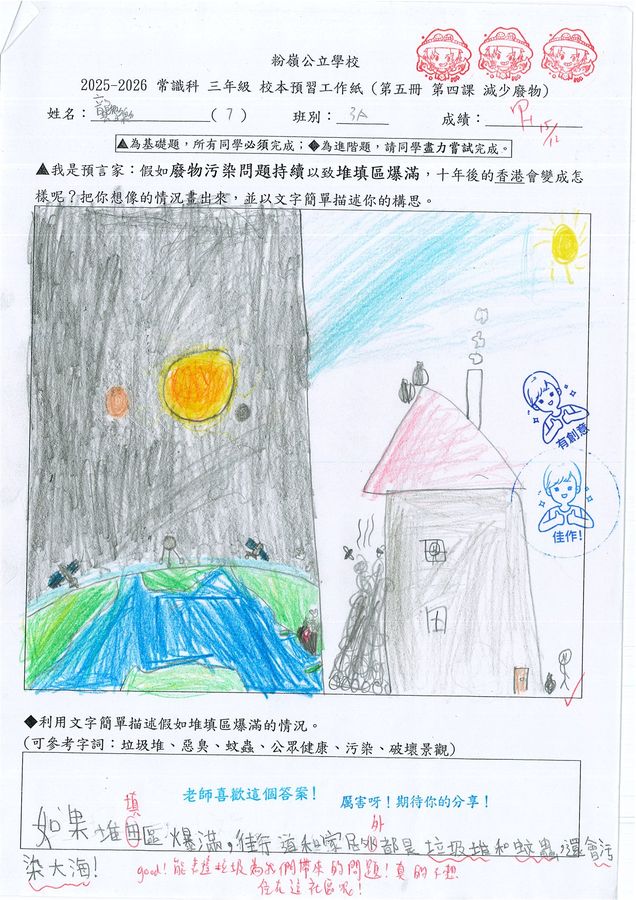 粉嶺公立學校
2025-2026 常識科 三年級 校本預習工作紙 (第五冊 第四課 減少廢物)
姓名： ( 7 ) 班別： 3A 成績：
15/12
▲為基礎題，所有同學必須完成；◆為進階題，請同學盡力嘗試完成。
▲我是預言家：假如廢物污染問題持續以致堆填區爆滿，十年後的香港會變成怎
樣呢？把你想像的情況畫出來，並以文字簡單描述你的構思。
有創意
佳作!
◆利用文字簡單描述假如堆填區爆滿的情況。
(可參考字詞：垃圾堆、惡臭、蚊蟲、公眾健康、污染、破壞景觀)
老師喜歡這個答案！ 厲害呀！期待你的分享！
填
外
如果堆田區爆滿，街行道和家居外都是垃圾堆和蚊蟲，還會污
染大海!
good! 能表達垃圾為我們帶來的問題! 真的不想
住在這社區呢!